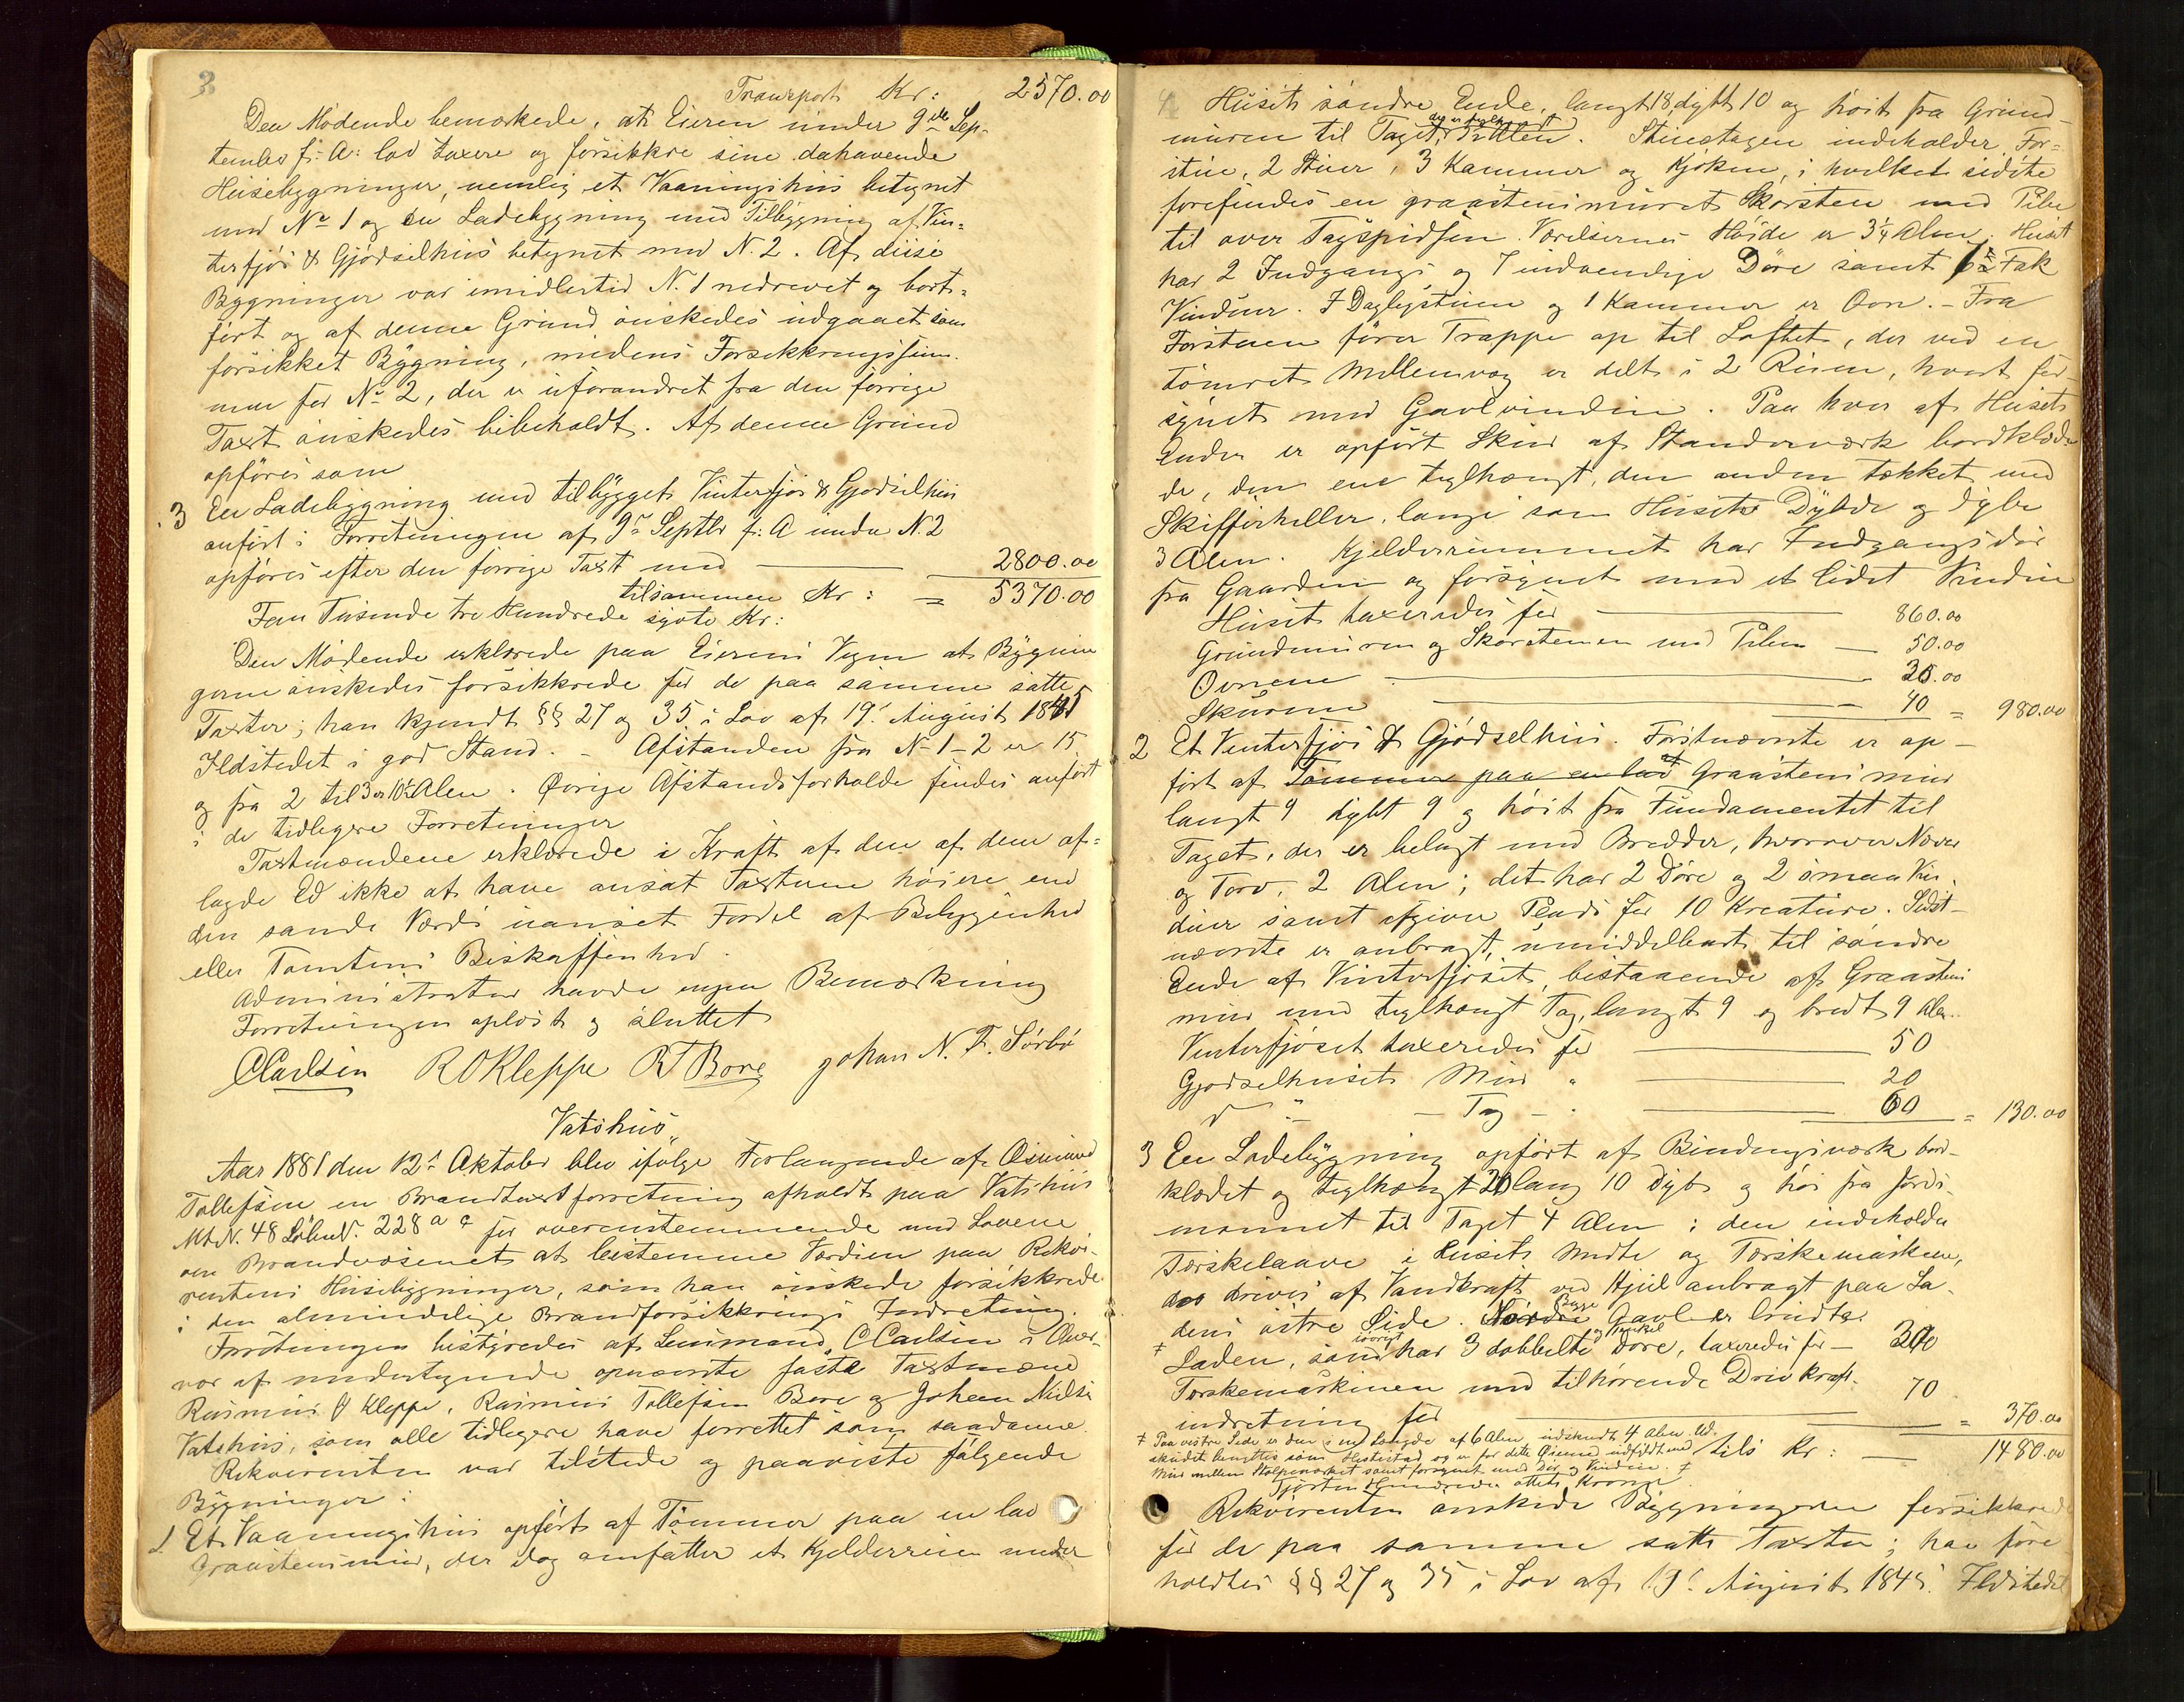 3
Transport Kr: 2570.00
Den Mödende bemærkede, at Eieren under 9de Sep-
tember f: A: lod taxere og forsikkre sine dahavende
Husebygninger, nemlig et Vaaningshus betegnet
med No 1 og en Ladebygning med Tilbygning af Vin-
terfjös & Gjödselhus betegnet med N. 2. Af disse
Bygninger var imidlertid N. 1 nedrevet og bort-
fört og af denne Grund önskedes udgaaet som
forsikket Bygning, medens Forsikkringssum-
men for No 2, der er uforandret fra den forrige
Taxt önskedes bibeholdt. Af denne Grund
opföres som
3 En Ladebygning med tilbygget Vinterfjös & Gjödselhus
anfört i Forretningen af 9de Septbr f: A under N. 2
opföres efter den forrige Taxt med 2800.00
tilsammen Kr: = 5370.00
Fem Tusinde tre Hundrede syvti Kr:
Den Mödende erklærede paa Eierens Vegne at Bygnin
gerne önskedes forsikkrede for de paa samme satte
Taxter; han kjendt §§ 27 og 35 i Lov af 19. August 1845
Ildstedet i god Stand. - Afstanden fra N- 1-2 er 15
og fra 2 til 3 er 10½ Alen. Övrige Afstandsforholde findes anfört
i de tidligere Forretninger
Taxtmændene erklærede i Kraft af den af dem af-
lagde Ed ikke at have ansat Taxterne höiere end
den sande Værdi uanset Fordel af Beliggenhed
eller Tomtens Beskaffenhed.
Administrator havde ingen Bemærkning
Forretningen oplæst og sluttet
CCarlsen ROKleppe RTBore Johan N. F. Sörbö
Vatshus
Aar 1881 den 12te Oktober blev ifölge Forlangende af Osmund
Tollefsen en Brandtaxtforretning afholdt paa Vatshus
Mt N. 48 LöbeN. 228 a for overenstemmende med Lovene
om Brandvæsenet at bestemme Værdien paa Rekvi-
rentens Husebygninger, som han önskede forsikkrede
i den almindelige Brandforsikkrings Indretning.
Forretningen bestyredes af Lensmand CCarlsen i Over-
vær af undertegnede opnævnte faste Taxtmænd
Rasmus O Kleppe, Rasmus Tollefsen Bore og Johan Nielse
Vatshus, som alle tidligere have forrettet som saadanne.
Rekvirenten var tilstede og paaviste fölgende
Bygninger:
1. Et Vaaningshus opfört af Tömmer paa en lav
Graastensmur, der dog omfatter et Kjelderrum under
4
Husets söndre Ende, langt 18 dybt 10 og höit fra Grund-
muren til Taget, der er teglhængt Alen. Stuestagen indeholder For-
stue, 2 Stuer, 3 Kammer og Kjöken, i hvilket sidste
forefindes en graastensmuret Skorsten med Pibe
til over Tagspidsen. Værelsernes Höide er 3¼ Alen. Huset
har 2 Indgangs og 7 indvendige Döre samt 6½ Fak
Vinduer. I Dagligstuen og 1 Kammer er Ovn. - Fra
Forstuen förer Trappe op til Loftet, der ved en
tömret Mellemvæg er delt i 2 Rum, hvert for-
synet med Gavlvindue. Paa hver af Husets
Ender er opfört Skur af Standerværk bordklæd-
de, den ene teglhængt, den anden tækket med
Skifferheller, lange som Husets Dybde og dybe
3 Alen. Kjelderrummet har Indgangsdör
fra Gaarden og forsynet med et lidet Vindue
Huset taxeredes for 860.00
Grundmuren og Skorstenen med Piben 50.00
Ovnene 30.00
Skurene 40 = 980.00
2 Et Vinterfjös & Gjödselhus. Förstnævnte er op-
fört af Tömmer paa en lav Graastensmur
langt 9 dybt 9 og höit fra Fundamentet til
Taget, der er belagt med Bredder, hvorover Næver
og Torv, 2 Alen; det har 2 Döre og 2 smaa Vin-
duer samt afgiver Plads for 10 Kreature. Sidst-
nævnte er anbragt umiddelbart til söndre
Ende af Vinterfjöset, bestaaende af Graastens
mur med teglhængt Tag, langt 9 og bredt 9 Alen.
Vinterfjöset taxeredes for 50
Gjödselhusets Mur " 20
d " - Tag - " 60 = 130.00
3 En Ladebygning opfört af Bindingsværk bord-
klædet og teglhængt 20 lang 10 dyb og höi fra Jords-
monnet til Taget 4 Alen: den indeholder
Tærskelaave i Husets Midte og Tærskemaskine,
der drives af Vandkraft ved Hjul anbragt paa La-
dens östre Side. Nordre Begge Gavle er brudte.
‡ Laden, som iövrigt har 3 dobbelte og enkel Döre, taxeredes for - 300
Tærskemaskinen med tilhörende Drivkraft-
indretning for 70 = 370.00
‡ Paa vestre Side er den i en Længde af 6 Alen udskudt 4 Alen. Ud-
skudet benyttes som Hestestad og er for dette Öiemed indfyldt med
Mur mellem Stolpeværket samt forsynet med Dör og Vindue. ‡
tils Kr: 1480.00
Fjorten Hundrede ottet Kroner
Rekvirenten önskede Bygningerne forsikkrede
for de paa samme satte Taxter; han fore
holdtes §§ 27 og 35 i Lov af 19. August 1845. Ildstedet